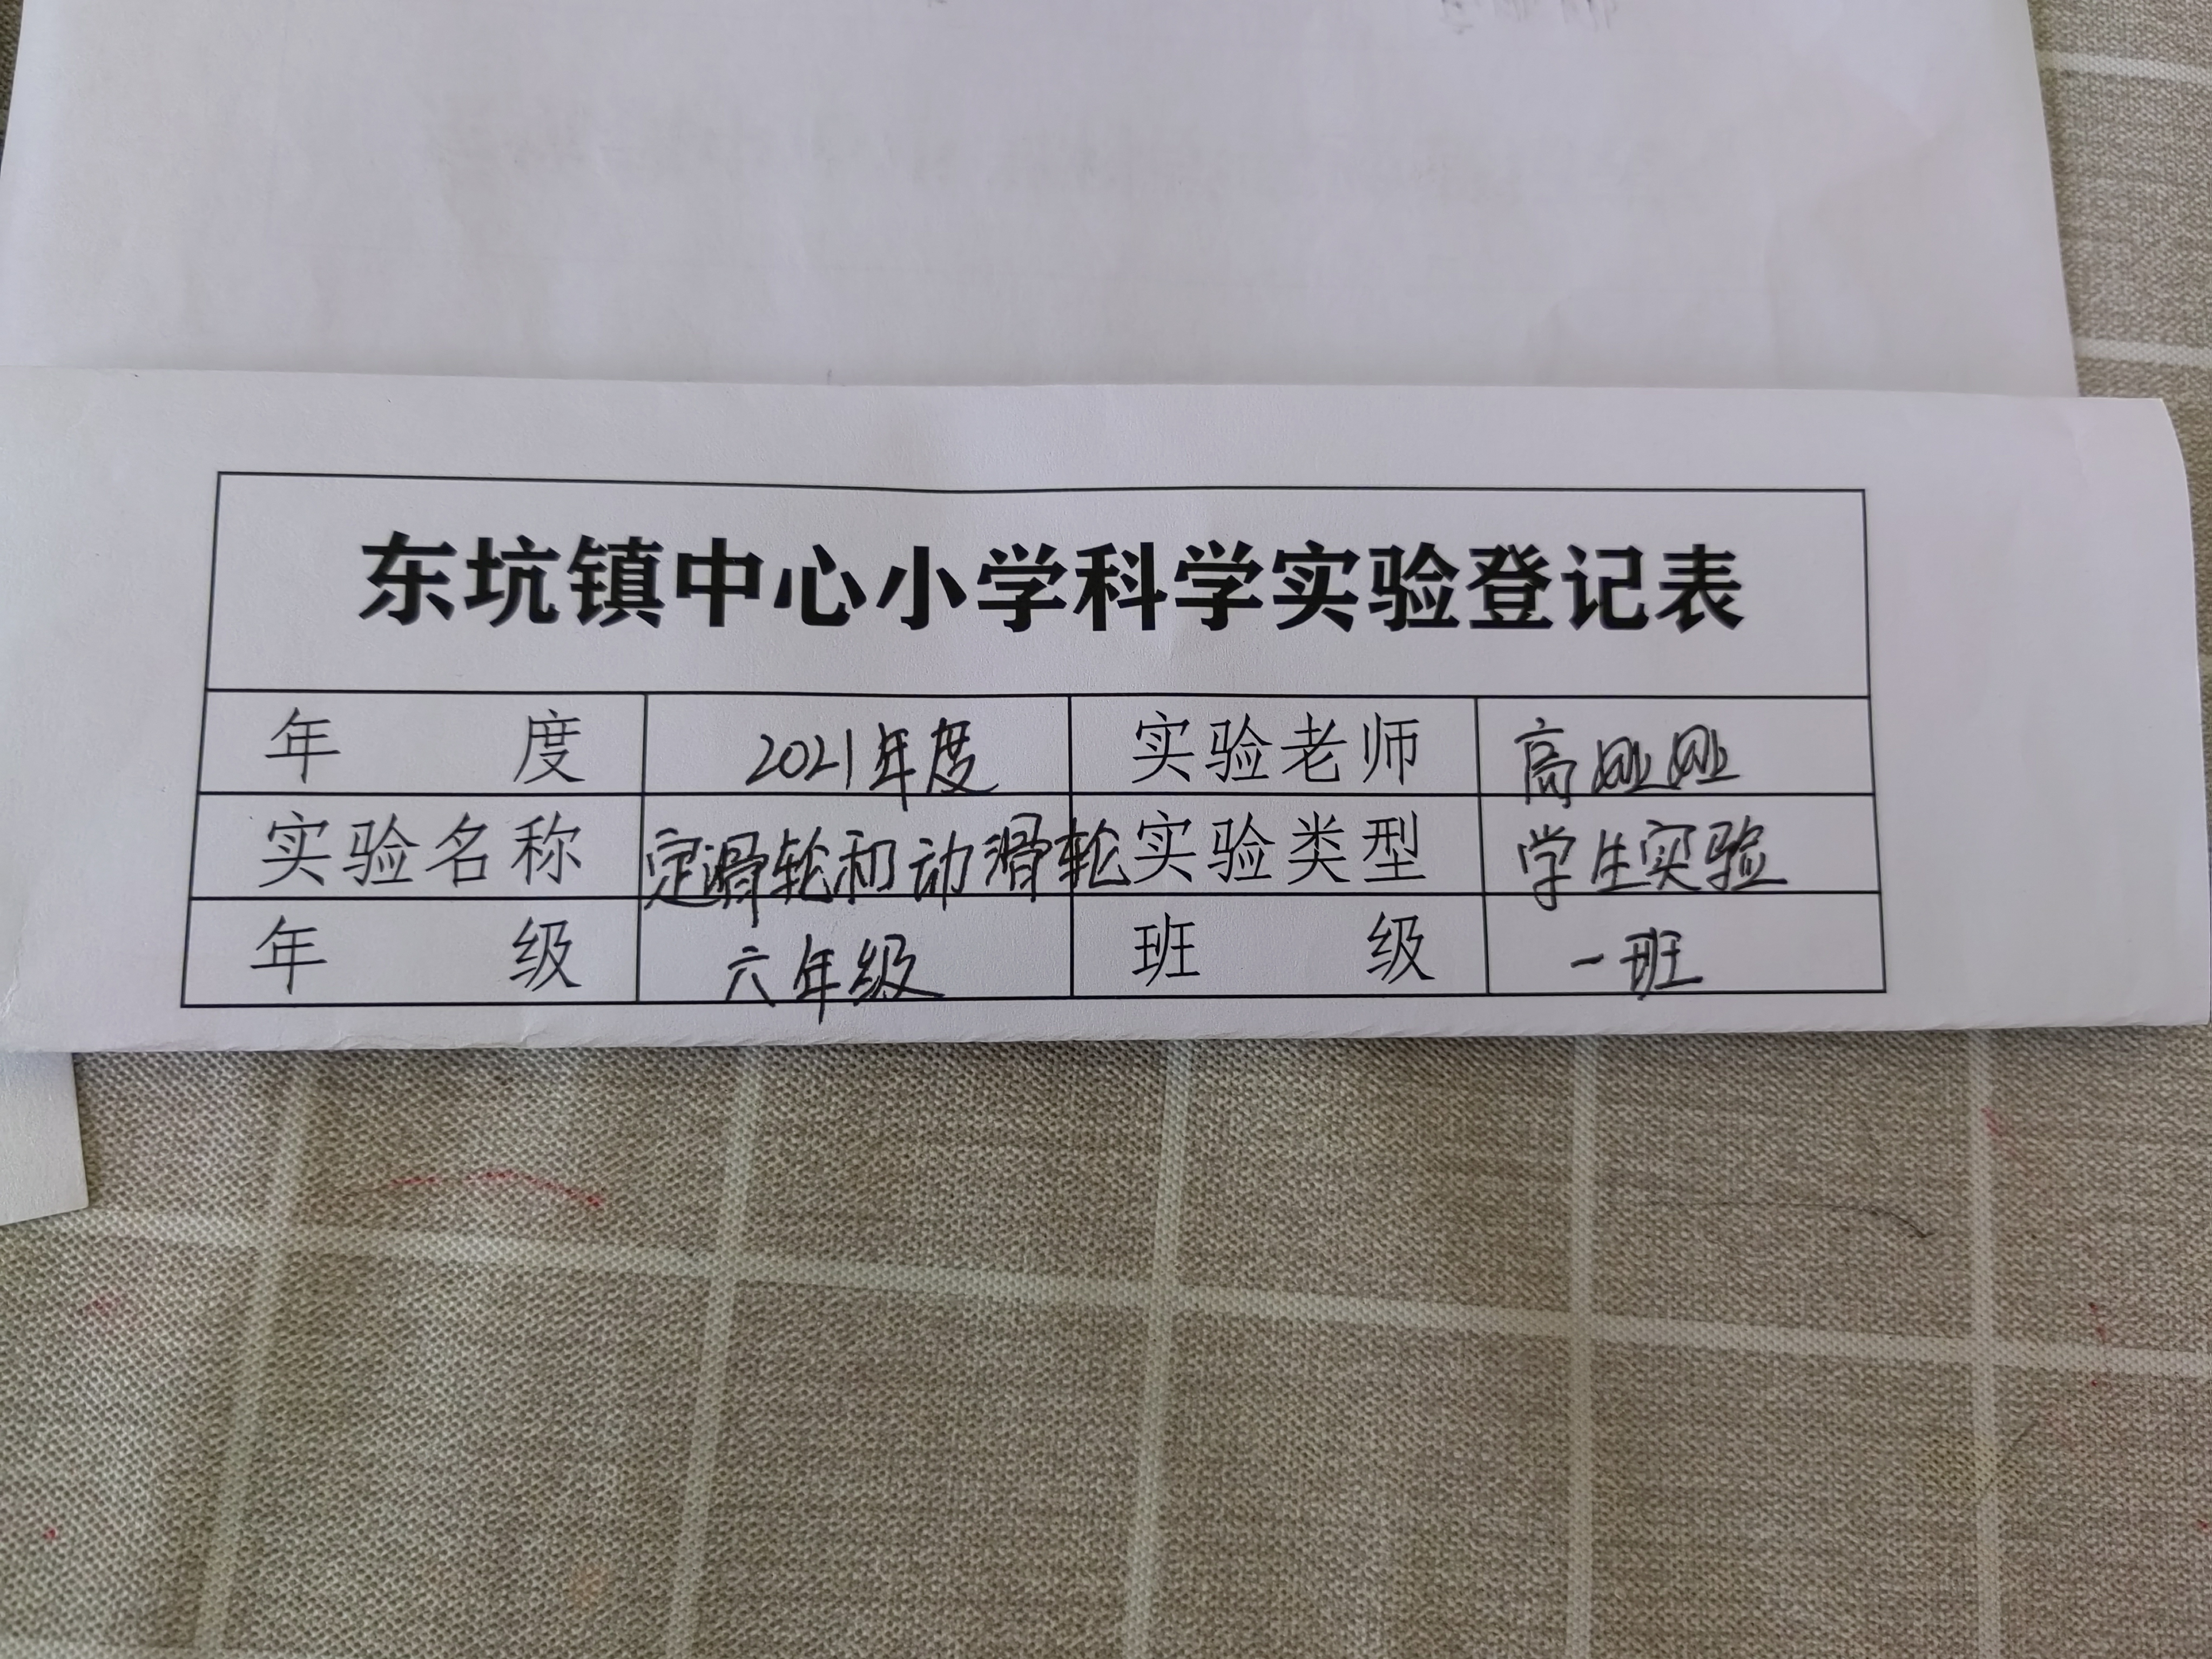 东坑镇中心小学科学实验登记表
年 度 2021年度 实验老师 高
实验名称 定滑轮和动滑轮 实验类型 学生实验
年 级 六年级 班 级 一班